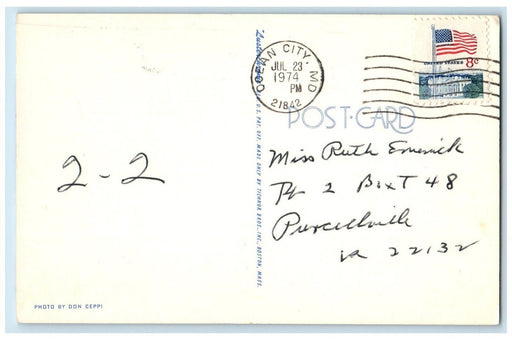 OCEAN CITY MD
JUL 23
1974
PM
21842
UNITED STATES 8c
POST CARD
2-2
Miss Ruth Emerick
Rt 2 Box T 48
Purcellville
Va 22132
U.S. PAT. OFF. MADE ONLY BY TICHNOR BROS., INC., BOSTON, MASS.
PHOTO BY DON CEPPI